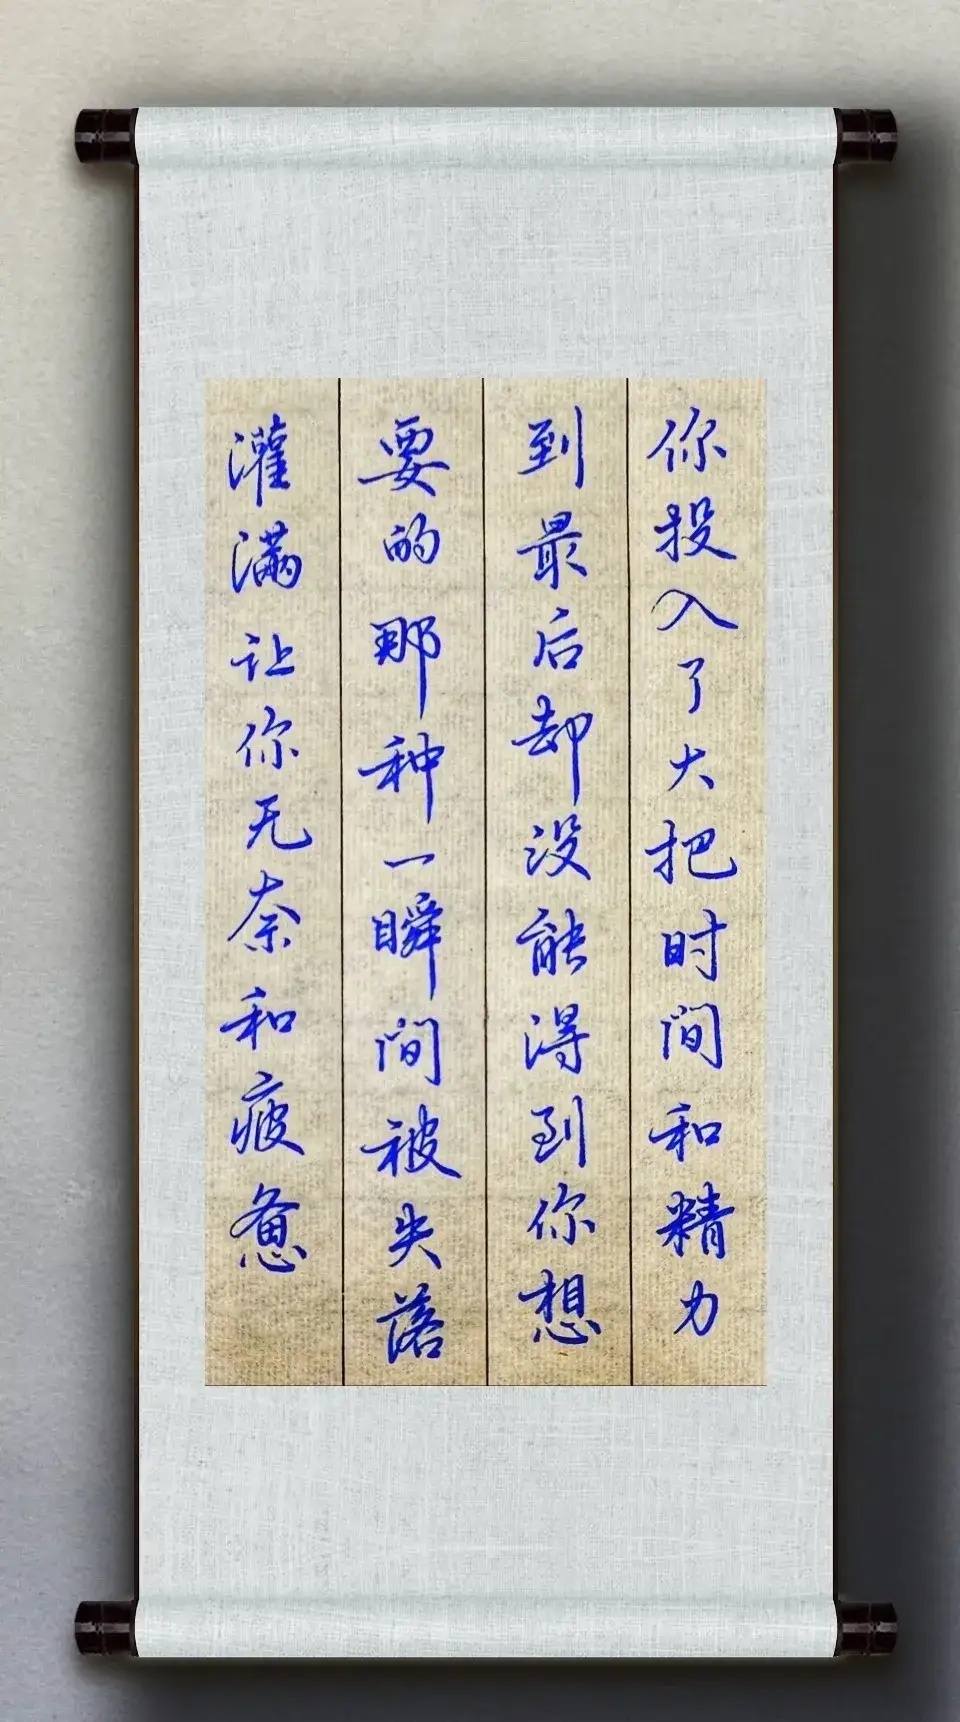 你投入了大把时间和精力
到最后却没能得到你想
要的那种一瞬间被失落
灌满让你无奈和疲惫